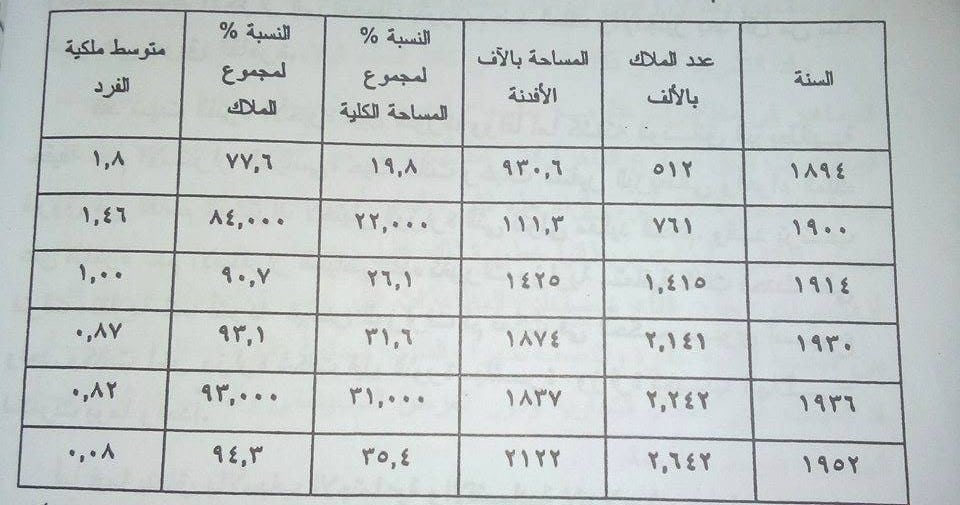 السنة | عدد الملاك بالألف | المساحة بالآف الأفدنة | النسبة % لمجموع المساحة الكلية | النسبة % لمجموع الملاك | متوسط ملكية الفرد
١٨٩٤ | ٥١٢ | ٩٣٠,٦ | ١٩,٨ | ٧٧,٦ | ١,٨
١٩٠٠ | ٧٦١ | ١١١,٣ | ٢٢,٠٠٠ | ٨٤,٠٠٠ | ١,٤٦
١٩١٤ | ١,٤١٥ | ١٤٢٥ | ٢٦,١ | ٩٠,٧ | ١,٠٠
١٩٣٠ | ٢,١٤١ | ١٨٧٤ | ٣١,٦ | ٩٣,١ | ٠,٨٧
١٩٣٦ | ٢,٢٤٢ | ١٨٣٧ | ٣١,٠٠٠ | ٩٣,٠٠٠ | ٠,٨٢
١٩٥٢ | ٢,٦٤٢ | ٢١٢٢ | ٣٥,٤ | ٩٤,٣ | ٠,٠٨